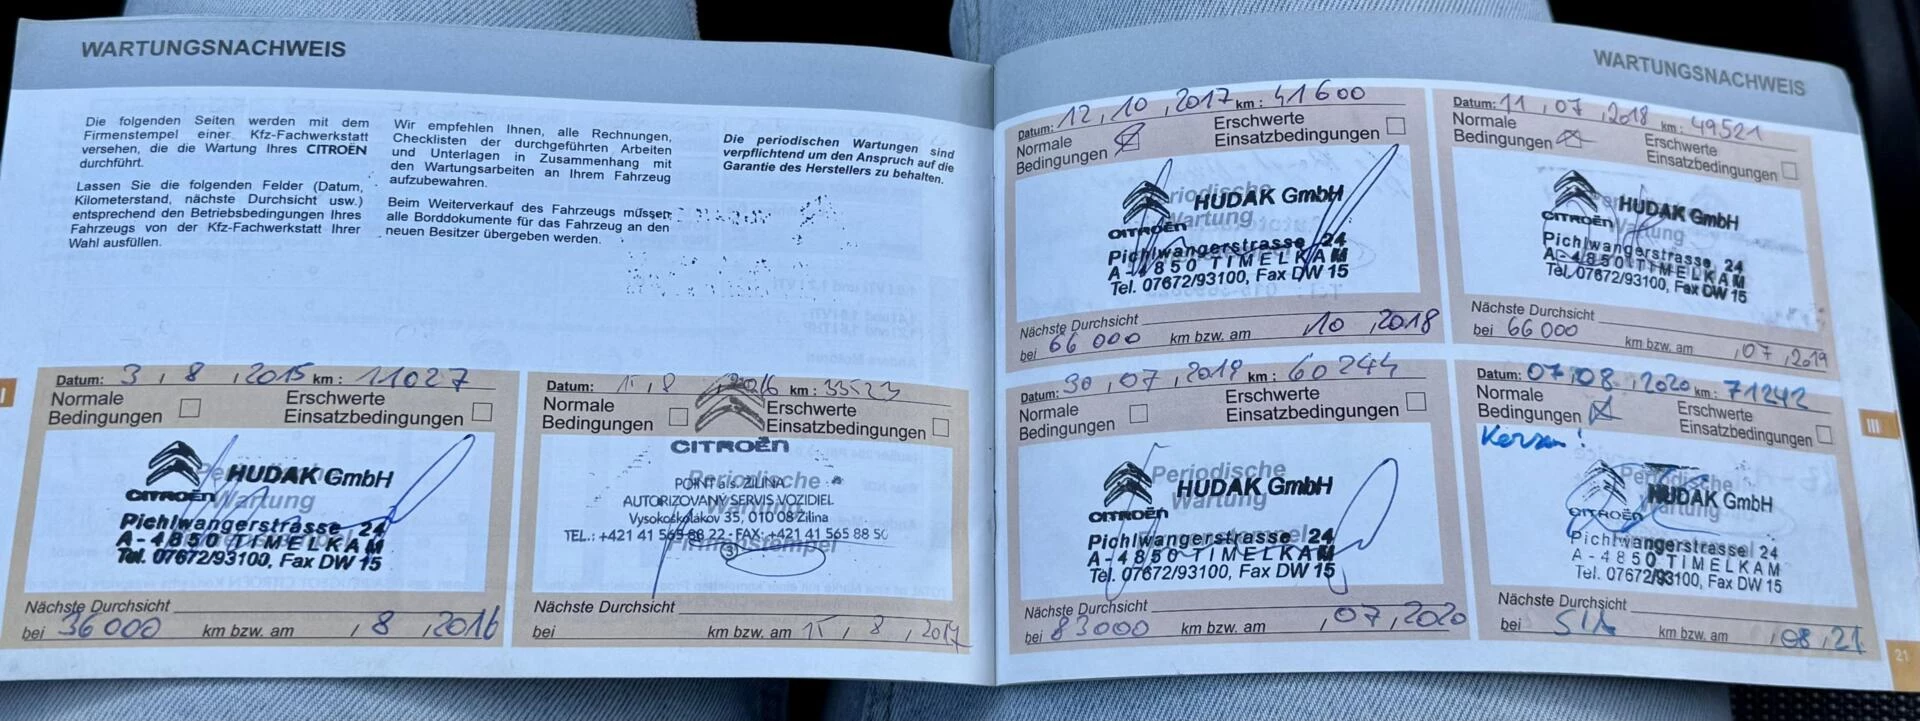 WARTUNGSNACHWEIS
Die folgenden Seiten werden mit dem
Firmenstempel einer Kfz-Fachwerkstatt
versehen, die die Wartung Ihres CITROËN
durchführt.
Lassen Sie die folgenden Felder (Datum,
Kilometerstand, nächste Durchsicht usw.)
entsprechend den Betriebsbedingungen Ihres
Fahrzeugs von der Kfz-Fachwerkstatt Ihrer
Wahl ausfüllen.
Wir empfehlen Ihnen, alle Rechnungen,
Checklisten der durchgeführten Arbeiten
und Unterlagen in Zusammenhang mit
den Wartungsarbeiten an Ihrem Fahrzeug
aufzubewahren.
Beim Weiterverkauf des Fahrzeugs müssen
alle Borddokumente für das Fahrzeug an den
neuen Besitzer übergeben werden.
Die periodischen Wartungen sind
verpflichtend um den Anspruch auf die
Garantie des Herstellers zu behalten.
Datum: 3, 8, 2015 km: 11027
Normale
Bedingungen
Erschwerte
Einsatzbedingungen
Periodische
Wartung
HUDAK GmbH
CITROËN
Pichlwangerstrasse 24
A-4850 TIMELKAM
Tel. 07672/93100, Fax DW 15
Nächste Durchsicht
bei 36000 km bzw. am , 8, 2016
Datum: 15, 8, 2016 km: 33523
Normale
Bedingungen
Erschwerte
Einsatzbedingungen
CITROËN
Periodische
Wartung
Firmenstempel
POINT a.s. ŽILINA
AUTORIZOVANÝ SERVIS VOZIDIEL
Vysokoškolákov 35, 010 08 Žilina
TEL.: +421 41 565 88 22 - FAX: +421 41 565 88 50
3
Nächste Durchsicht
bei km bzw. am 15, 8, 2017
WARTUNGSNACHWEIS
Datum: 12, 10, 2017 km: 41600
Normale
Bedingungen
Erschwerte
Einsatzbedingungen
Periodische
Wartung
HUDAK GmbH
CITROËN
Pichlwangerstrasse 24
A-4850 TIMELKAM
Tel. 07672/93100, Fax DW 15
Nächste Durchsicht
bei 66000 km bzw. am , 10, 2018
Datum: 11, 07, 2018 km: 49521
Normale
Bedingungen
Erschwerte
Einsatzbedingungen
Wartung
HUDAK GmbH
CITROËN
Pichlwangerstrasse 24
A-4850 TIMELKAM
Tel. 07672/93100, Fax DW 15
Nächste Durchsicht
bei 66000 km bzw. am , 07, 2019
Datum: 30, 07, 2019 km: 60244
Normale
Bedingungen
Erschwerte
Einsatzbedingungen
Periodische
Wartung
HUDAK GmbH
CITROËN
Pichlwangerstrasse 24
A-4850 TIMELKAM
Tel. 07672/93100, Fax DW 15
Nächste Durchsicht
bei 83000 km bzw. am , 07, 2020
Datum: 07, 08, 2020 km: 71242
Normale
Bedingungen
Erschwerte
Einsatzbedingungen
Periodische
Wartung
HUDAK GmbH
CITROËN
Pichlwangerstrasse 24
A-4850 TIMELKAM
Tel. 07672/93100, Fax DW 15
Nächste Durchsicht
bei km bzw. am , 08, 21
III
21